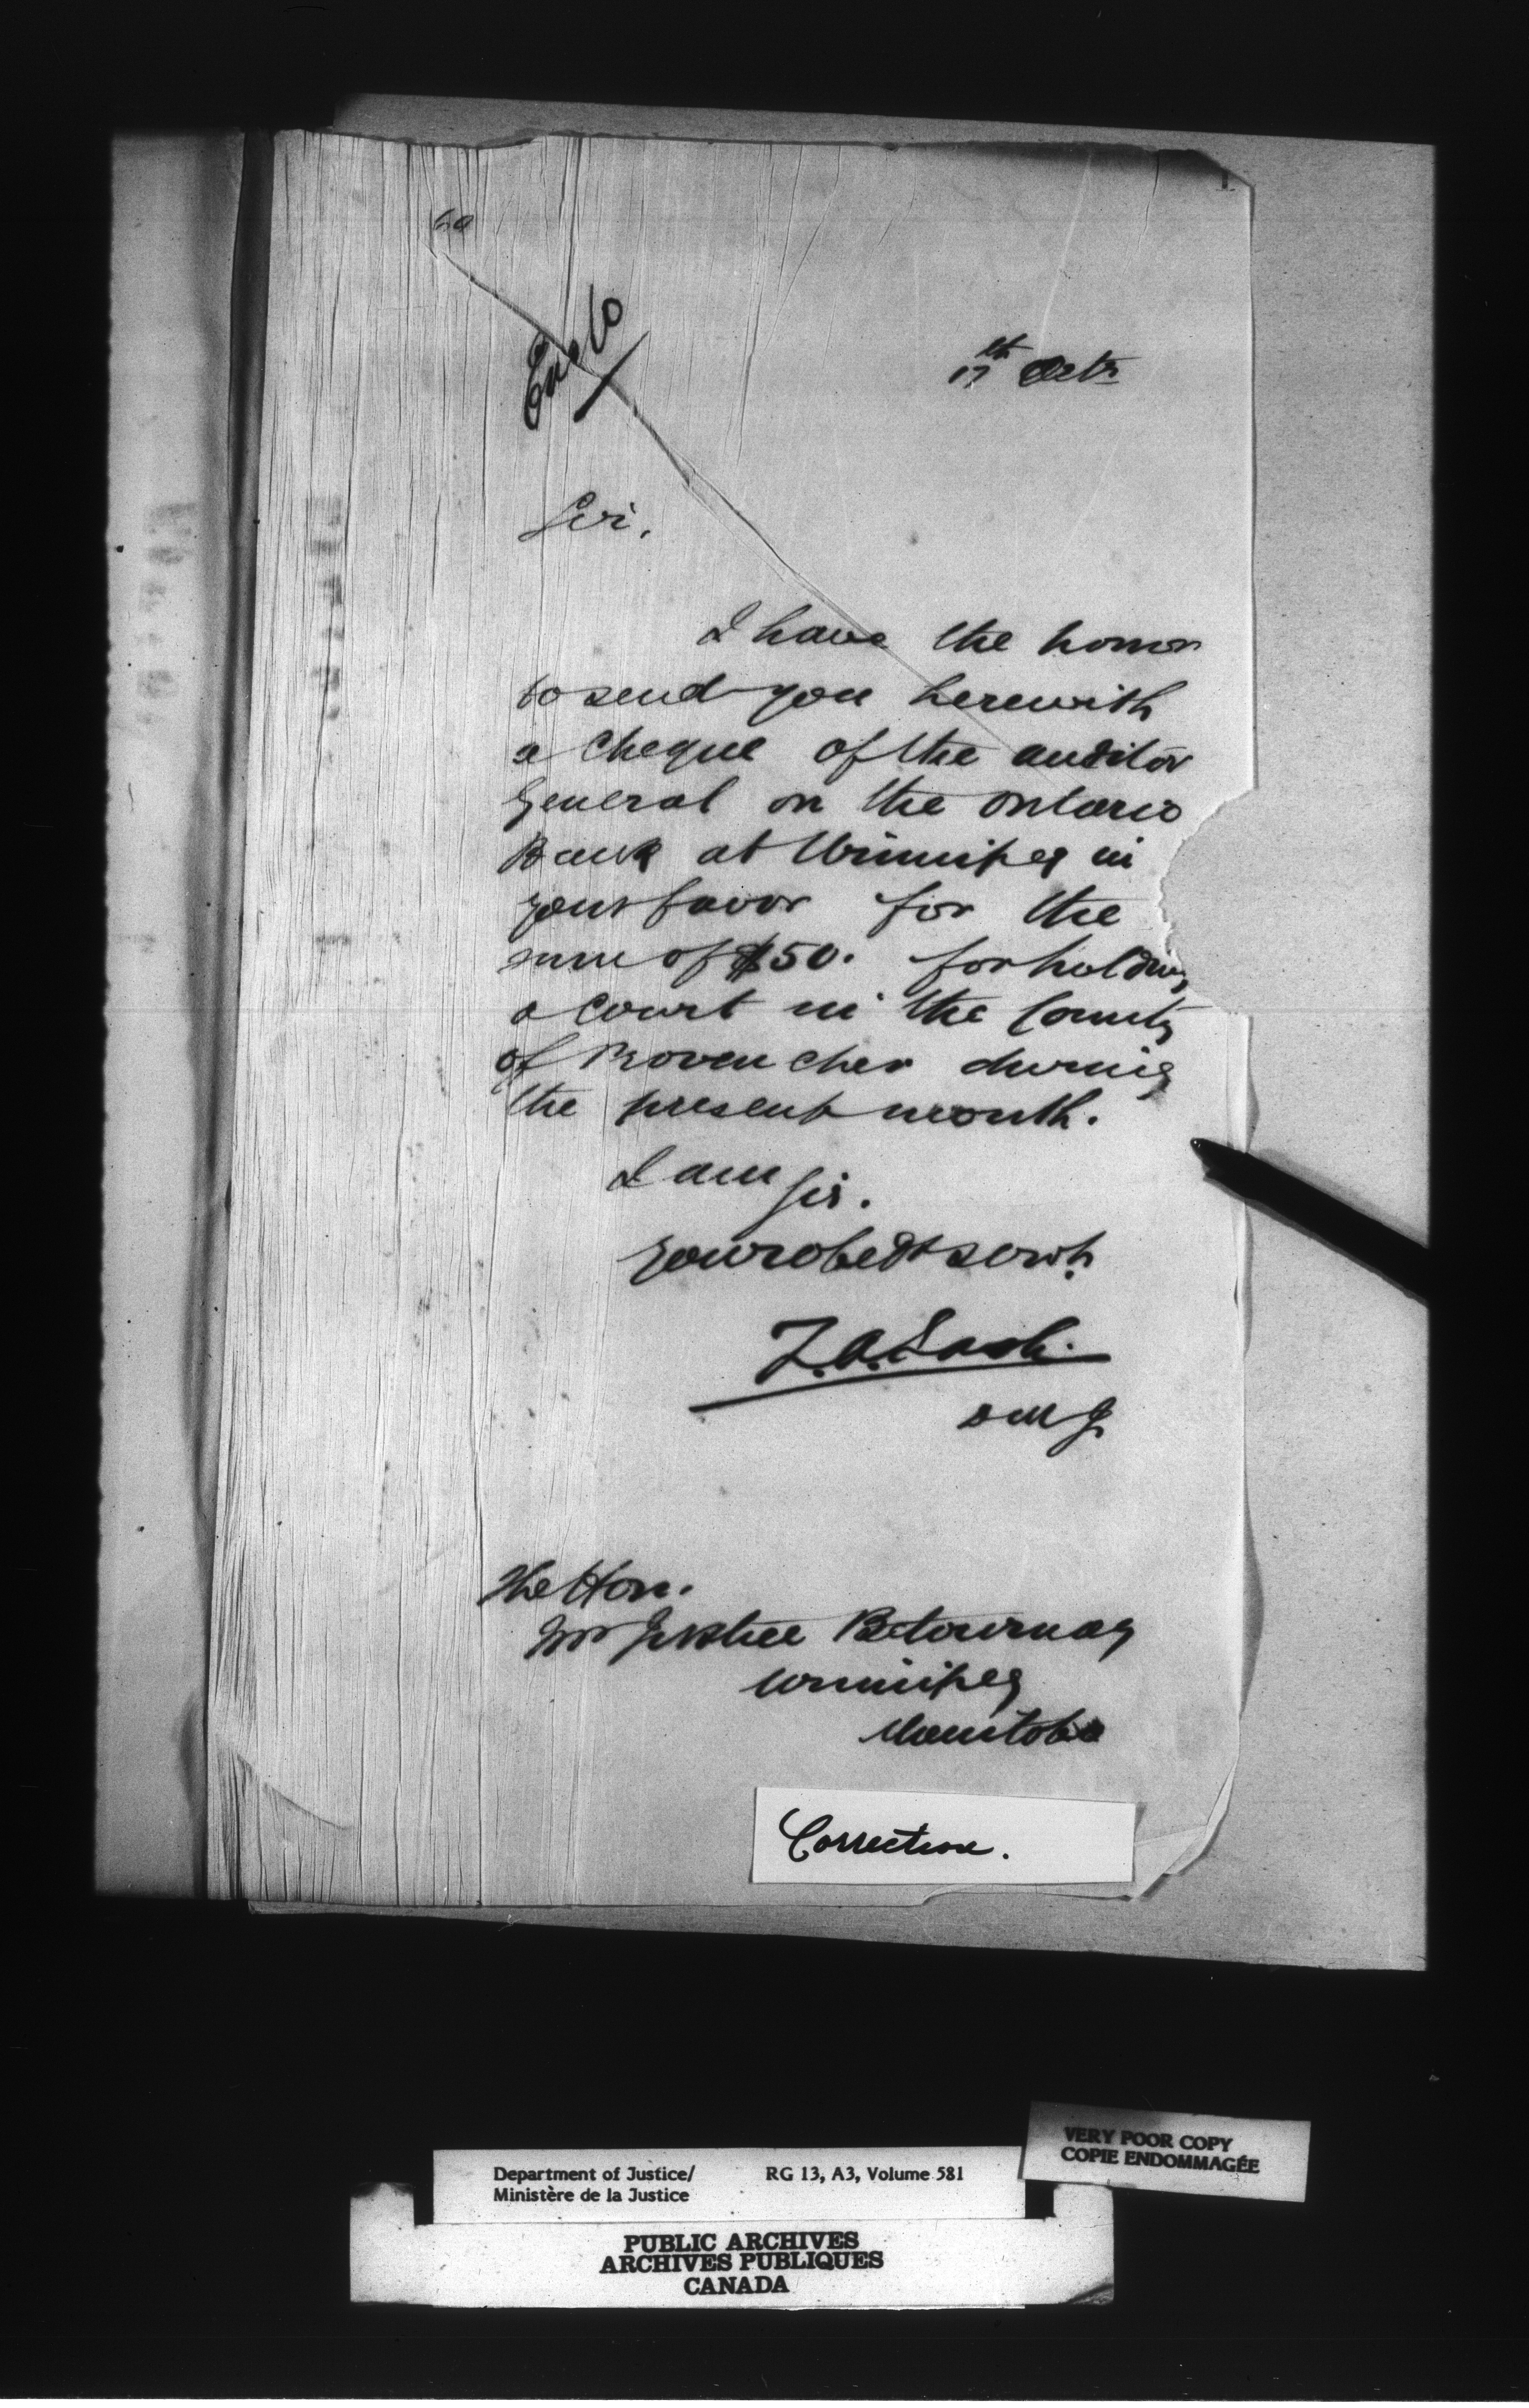 Enclo
17th Octr
Sir,
I have the honor
to send you herewith
a cheque of the auditor
General on the Ontario
Bank at Winnipeg in
your favor for the
sum of $50. for holding
a Court in the County
of Provencher during
the present month.
I am
Sir.
Your obedt servt.
Z.A. Lash.
DMJ
The Hon.
Mr Justice Betournay
Winnipeg
Manitoba
Correction.
VERY POOR COPY
COPIE ENDOMMAGÉE
Department of Justice/ RG 13, A3, Volume 581
Ministère de la Justice
PUBLIC ARCHIVES
ARCHIVES PUBLIQUES
CANADA